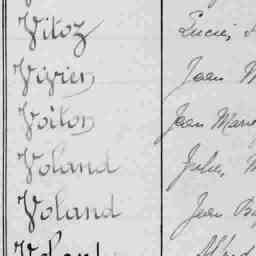 Vitoz Lucie,
Vivien Jean M
Voiton Jean Marie
Voland Jules,
Voland Jean Ba
Volant Alfred